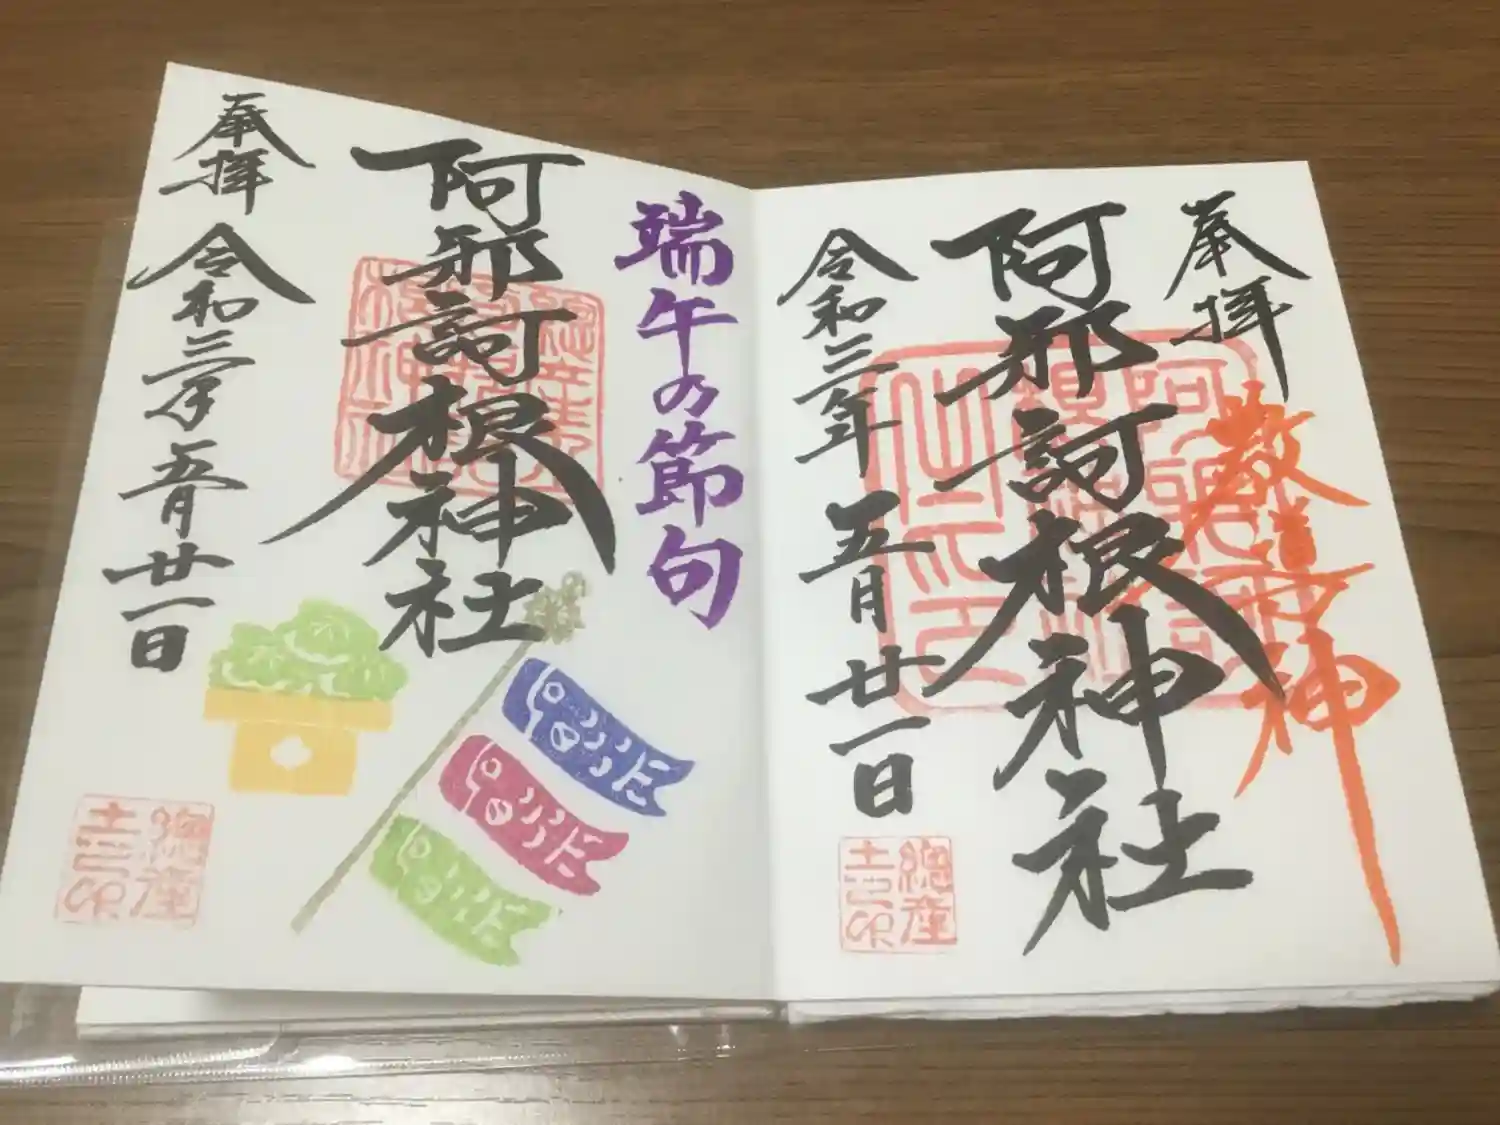 奉拝
阿邪訶根神社
令和三年五月廿一日
端午の節句
阿邪訶根神社
奉拝 令和三年五月廿一日